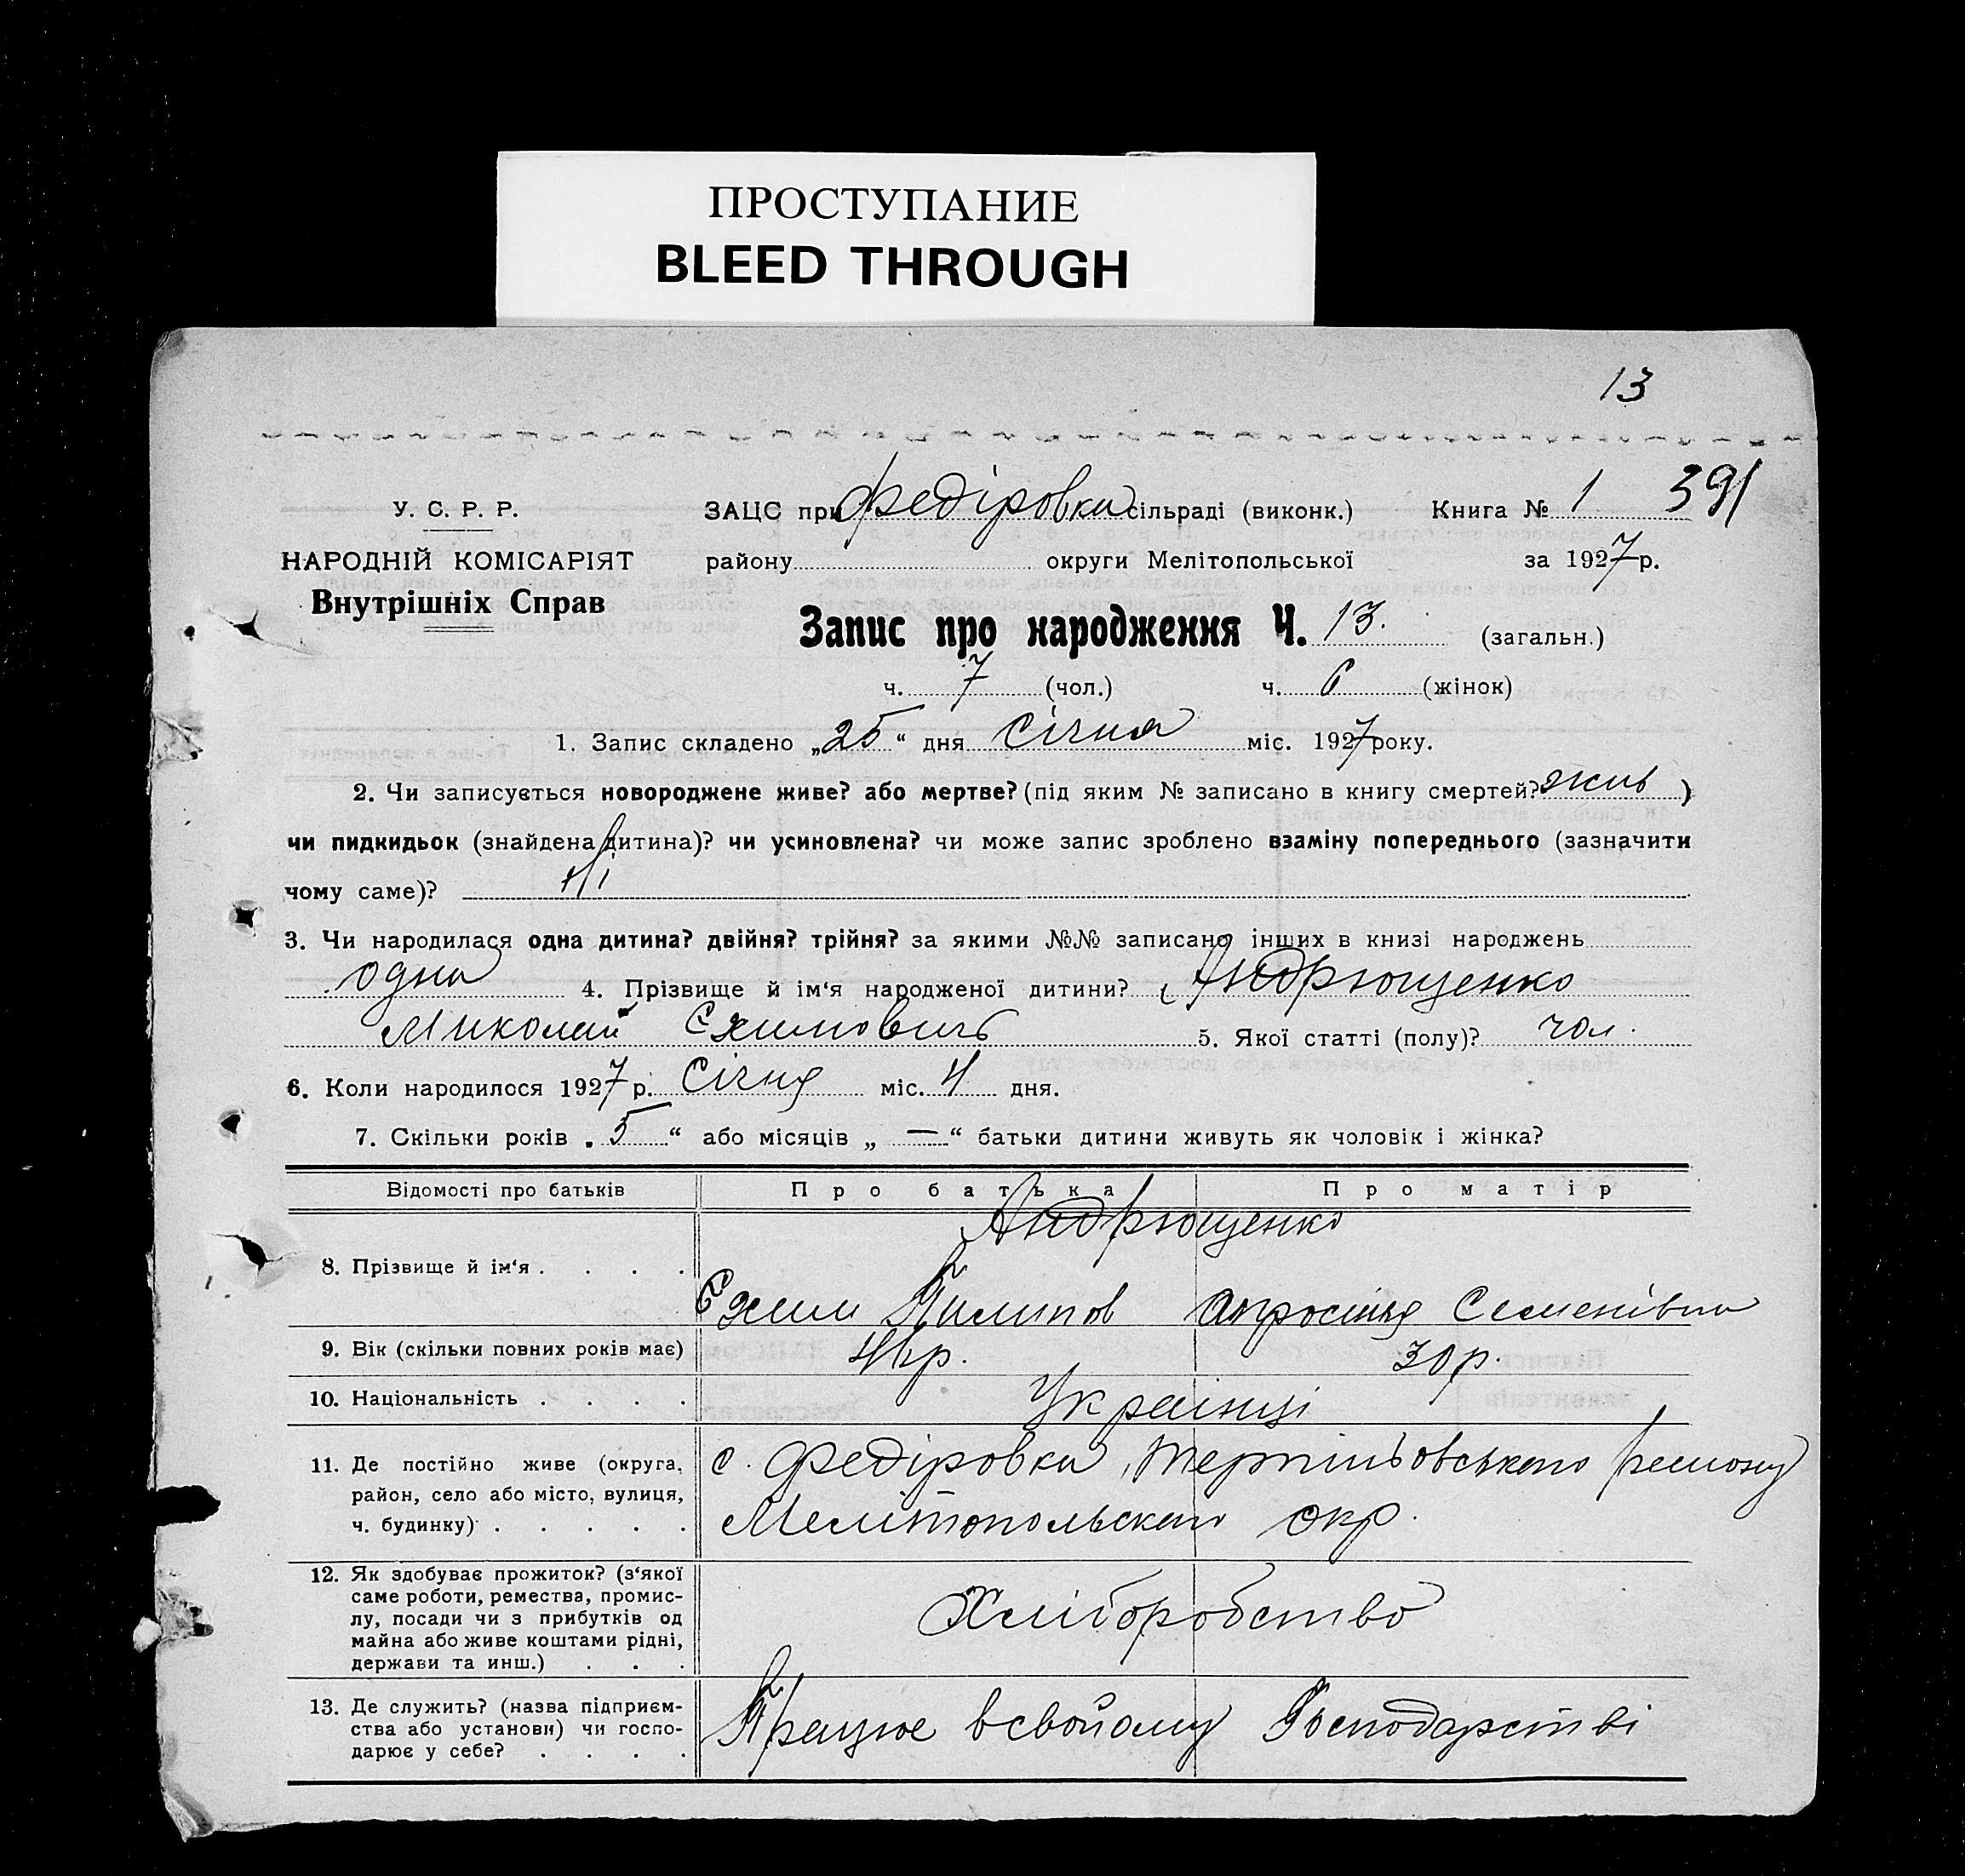 ПРОСТУПАНИЕ
BLEED THROUGH
13
У. С. Р. Р.
ЗАЦС при Федіровка сільраді (виконк.) Книга № 1 391
НАРОДНІЙ КОМІСАРІЯТ
району округи Мелітопольської за 1927 р.
Внутрішніх Справ
Запис про народження Ч. 13. (загальн.)
ч. 7 (чол.) ч. 6 (жінок)
1. Запис складено „25“ дня Січня міс. 1927 року.
2. Чи записується новороджене живе? або мертве? (під яким № записано в книгу смертей? жив)
чи пидкидьок (знайдена дитина)? чи усиновлена? чи може запис зроблено взаміну попереднього (зазначити
чому саме)? Ні
3. Чи народилася одна дитина? двійня? трійня? за якими №№ записано інших в книзі народжень
одна 4. Прізвище й ім‘я народженої дитини? Андрющенко
Миколай 5. Якої статті (полу)? чол.
6. Коли народилося 1927 р. Січня міс. 4 дня.
7. Скільки років „5“ або місяців „—“ батьки дитини живуть як чоловік і жінка?
Відомості про батьків Про батька Про матір
Андрющенко
8. Прізвище й ім‘я . . . .
Пилипов Семенівна
9. Вік (скільки повних років має) 30 р.
10. Національність . . . . Українці
11. Де постійно живе (округа, с. Федіровка, району
район, село або місто, вулиця,
ч. будинку) . . . . . Мелітопольского окр.
12. Як здобуває прожиток? (з‘якої
саме роботи, ремества, промис-
лу, посади чи з прибутків од Хліборобство
майна або живе коштами рідні,
держави та инш.) . . .
13. Де служить? (назва підприєм-
ства або установи) чи госпо- Працює всвойому Господарстві
дарює у себе? . . . .